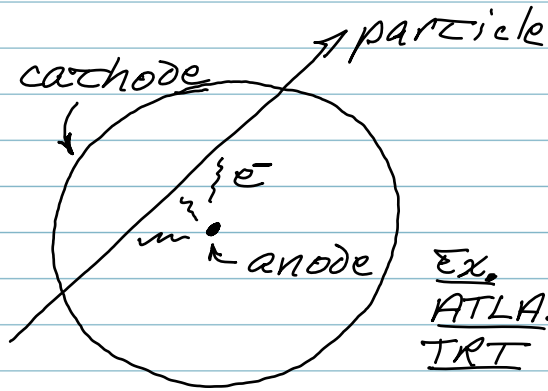 particle
cathode
e⁻
anode
Ex.
ATLA.
TRT